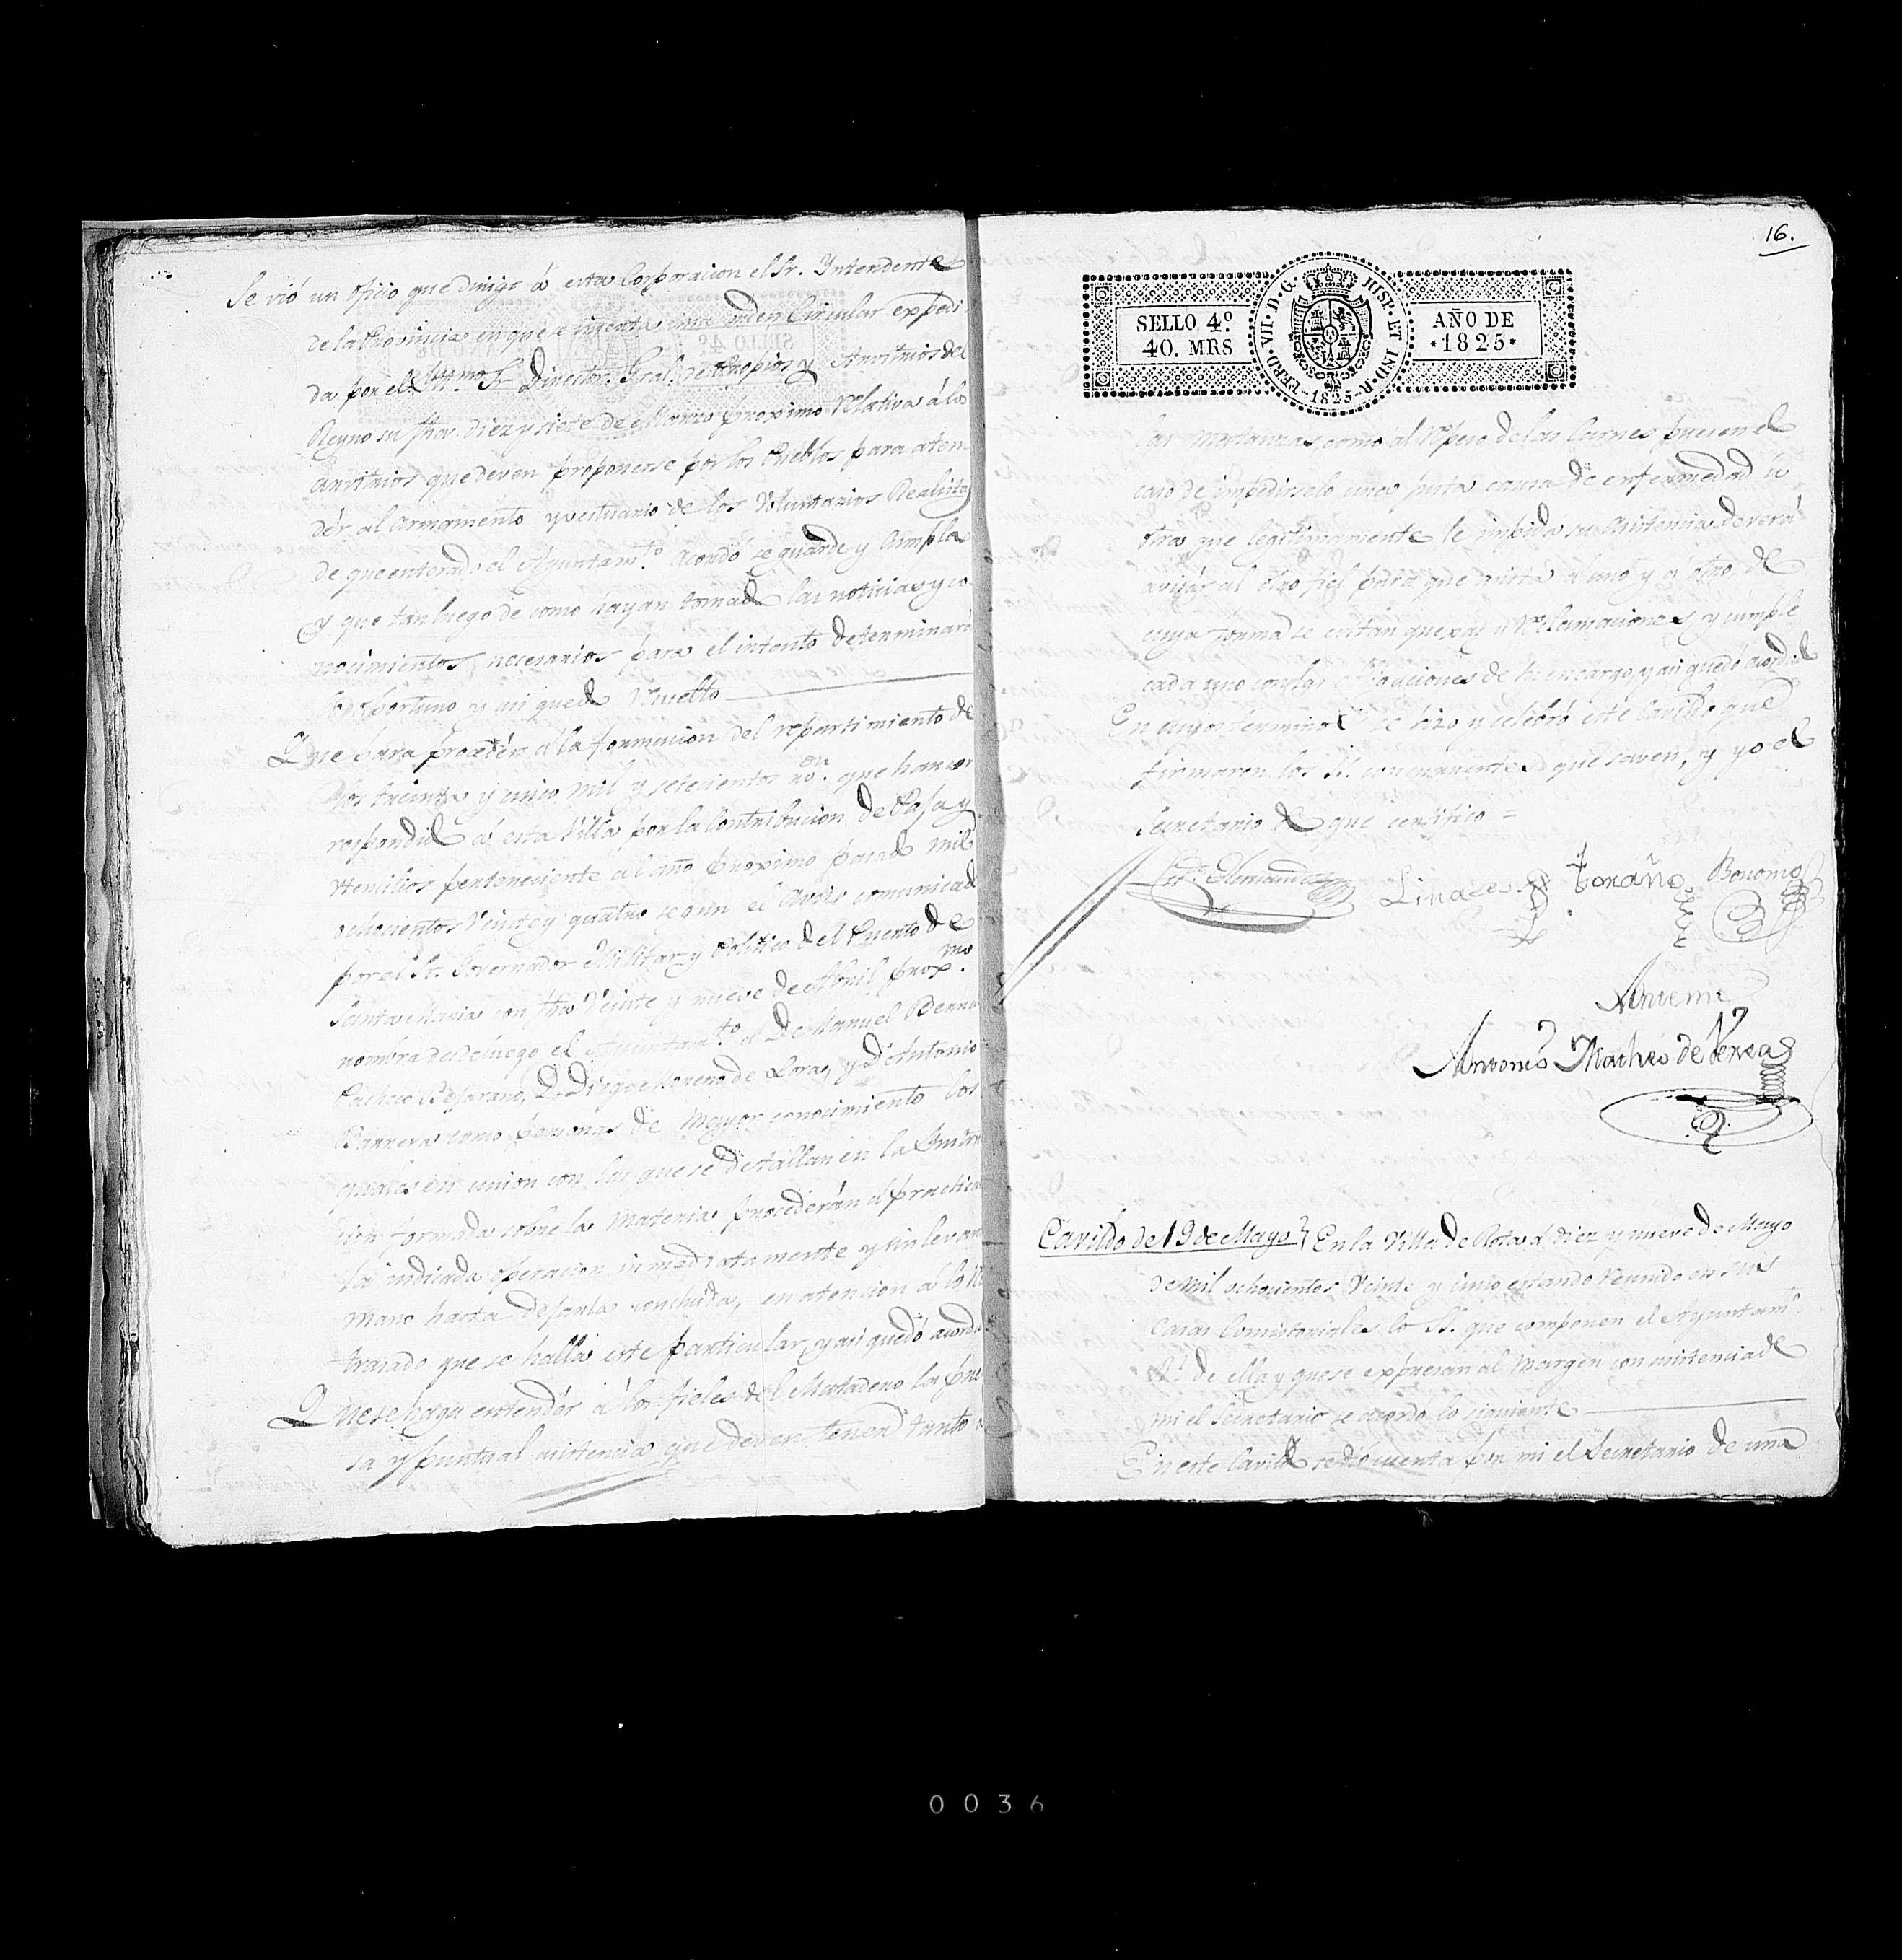 Se vió un oficio que dirige á esta Corporacion el Sr. Yntendente
de la Provincia en que se inserta una orden Circular expedi-
da por el Yllmo. Sr. Director Gral. de Propios y Arvitrios del
Reyno su fha. diez y siete de Marzo proximo relativa á los
arvitrios que deven proponerse por los Pueblos para aten-
dér al armamento y vestuario de los Voluntarios Realistas
de que enterado el Ayuntamto. acordó se guarde y Cumpla
y que tan luego de como hayan tomado las noticias y co-
nocimientos necesarios para el intento determinará
lo oportuno y asi quedó resuelto
Que para procedér a la formacion del repartimiento de
los treinta y cinco mil y setecientos rs. von. que han cor-
respondido á esta Villa por la Contribucion de Paja y
Utencilios perteneciente al año proximo pasado mil
ochocientos veinte y quatro segun el aviso comunicado
por el Sr. Governador Militar y Politico del Puerto de
Santa Maria con fha veinte y nueve de Abril proxmo.
nombra desde luego el Ayuntamto. a Dn. Manuel Berna
Pacheco Bejarano, Dn. Diego Moreno de Lora, y Dn. Antonio
Barrera como personas de mayor conocimiento los
quales en union con las que se detallan en la Instruc
cion formada sobre la materia procederán al practica
la indicada operacion inmediatamente y sin levan
mano hasta dejarla concluida, en atencion a lo re
trasado que se halla este particular, y asi quedó acorda
Que se haga entendér á los fieles del Matadero la pre
sa y puntual asistencia que deven tener tanto a
16.
SELLO 4.º
40. MRS
FERD. VII. D. G. HISP. ET IND. R.
1825
AÑO DE
1825
las matanzas como al repeso de las Carnes pues en el
caso de impedirselo una justa causa de enfermedad ú
otra que legitimamente le impida su asistencia deverá
avisár al otro fiel para que asista a uno y a otro de
cuya forma se evitan quexas ú reclamaciones y cumple
cada uno con las obligaciones de su encargo, y asi quedó acordado
En cuyos terminos se hizo y celebró este Cavildo que
firmaron los SS. concurrentes que saven, y yo el
Secretario de que certifico =
Hernandez
Linares
toraño
Bonomo
Ante mi
Antonio Matheo de
Cavildo de 19 de Mayo } En la Villa de Rota á diez y nueve de Mayo
de mil ochocientos veinte y cinco estando reunido en sus
Casas Consistoriales los SS. que componen el Ayuntamto.
Rl. de ella y que se expresan al margen con asistencia de
mi el Secretario se acordó lo siguiente
En este Cavildo se dió cuenta por mi el Secretario de una
0036